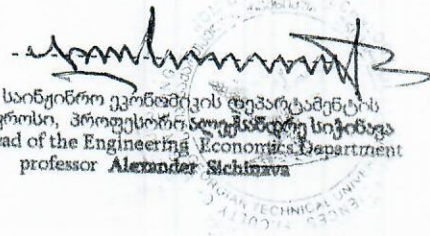 საინჟინრო ეკონომიკის დეპარტამენტის
უფროსი, პროფესორი ალექსანდრე სიჭინავა
ead of the Engineering Economics Department
professor Alexander Sichinava
TECHNICAL UNIV